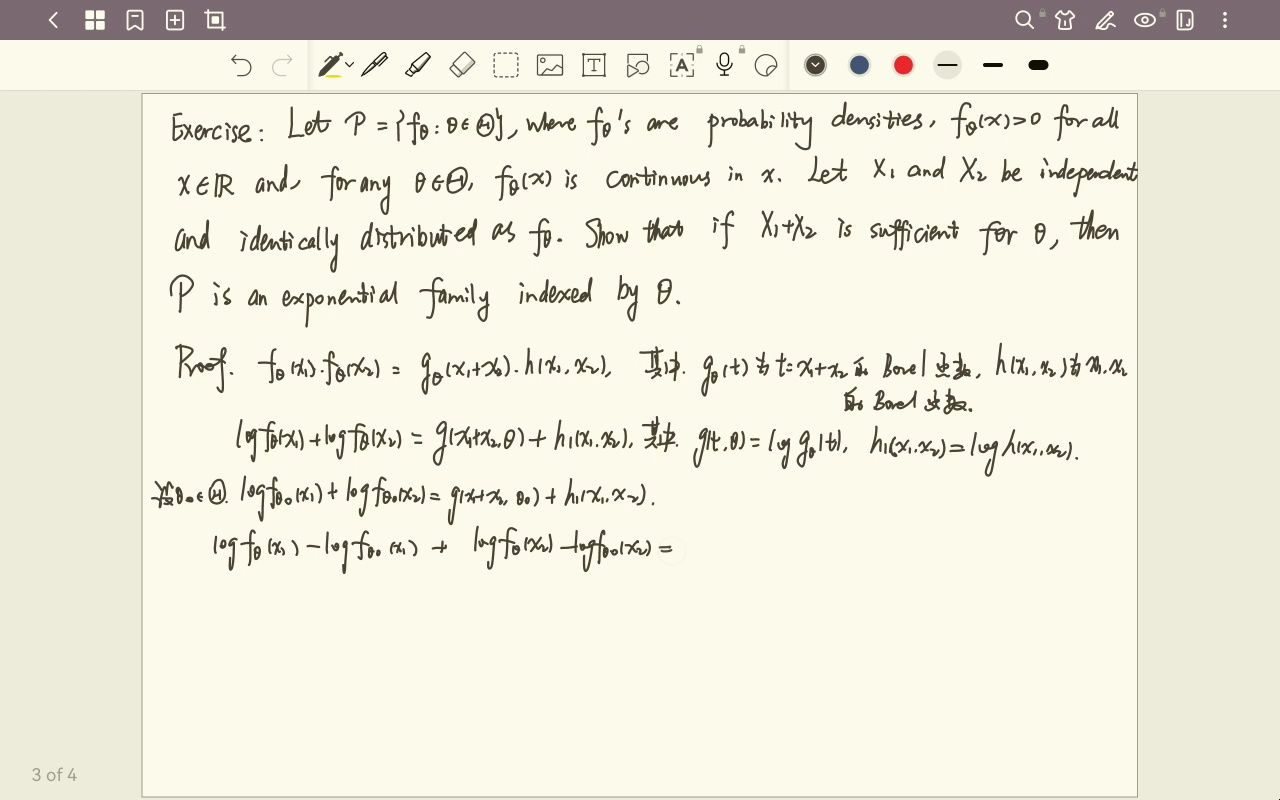 Exercise: Let P = {fθ: θ∈Θ}, where fθ's are probability densities, fθ(x)>0 for all
x∈ℝ and, for any θ∈Θ, fθ(x) is continuous in x. Let X₁ and X₂ be independent
and identically distributed as fθ. Show that if X₁+X₂ is sufficient for θ, then
P is an exponential family indexed by θ.
Proof. fθ(x₁)·fθ(x₂) = gθ(x₁+x₂)·h(x₁,x₂), 其中 gθ(t)为t=x₁+x₂的 Borel 函数, h(x₁,x₂)为x₁,x₂
的 Borel 函数.
logfθ(x₁)+logfθ(x₂) = g(x₁+x₂,θ)+h₁(x₁,x₂), 其中 g(t,θ)=log gθ(t), h₁(x₁,x₂)=log h(x₁,x₂).
θ₀∈Θ. logfθ₀(x₁)+logfθ₀(x₂)=g(x₁+x₂,θ₀)+h₁(x₁,x₂).
logfθ(x₁)-logfθ₀(x₁) + logfθ(x₂)-logfθ₀(x₂) =
3 of 4